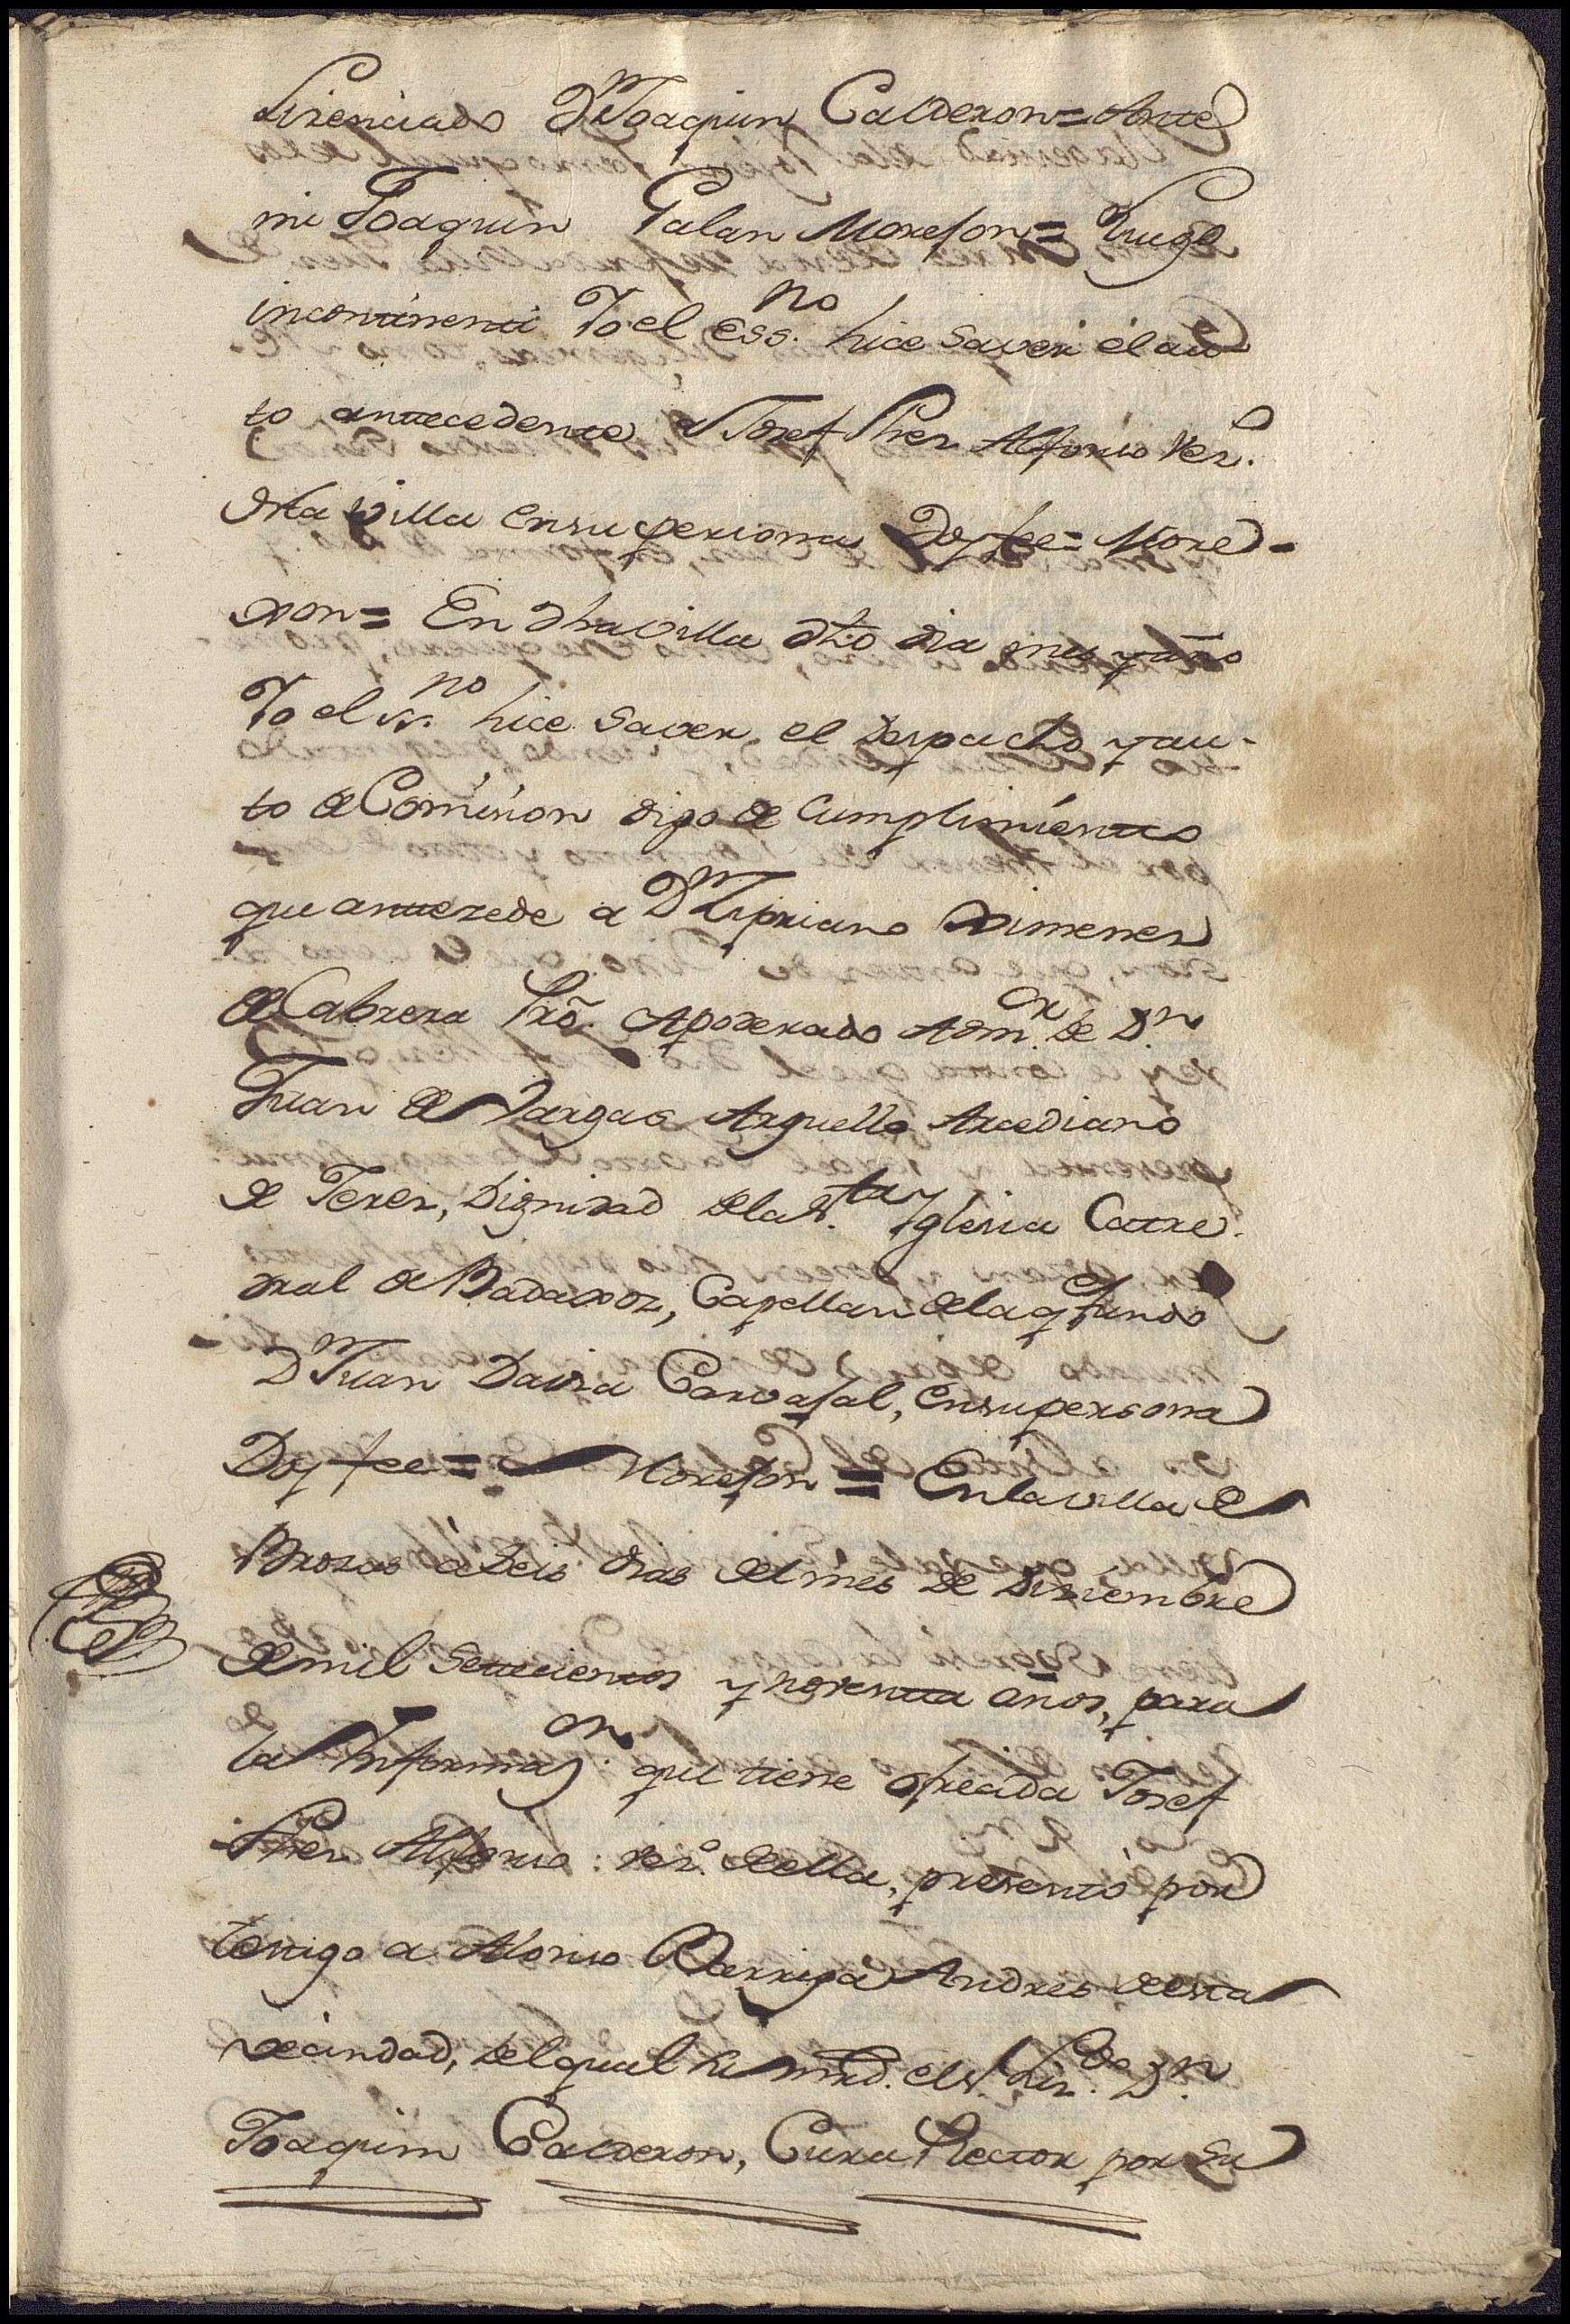 Lizenciado D.n Joaquin Calderon = Ante
mi Joaquin Galan Morejon = Luego
incontinenti Yo el Ess.no hice saver el au-
to antecedente a Josef Prer Alfonso vez.o
dsta villa en su persona Doyfee = More-
xon = En dha villa dho dia mes y año
Yo el ss.no hice saver el Despacho y au-
to de Comision digo de cumplimiento
que antezede a D.n Zipriano Ximenez
de Cabrera Prō. Apoderado Adm.or de D.n
Juan de Vargas Arguello Arcediano
de Jerez, Dignidad dela S.ta Yglesia Catre-
dral de Badaxoz, Capellan dela q fundo
D.n Juan Davia Carvajal, en su persona
Doyfee = Morejon = En la villa de
Brozas a seis dias del mes de Diziembre
de mil setecientos y noventa años, para
la Informaz.on que tiene ofrecida Josef
Prer Alfonso vez.o de ella, presentó por
testigo a Alonso Barriga Andres de esta
vecindad, del qual su mrd. el S. Liz.do D.n
Joaquin Calderon, Cura Rector por su